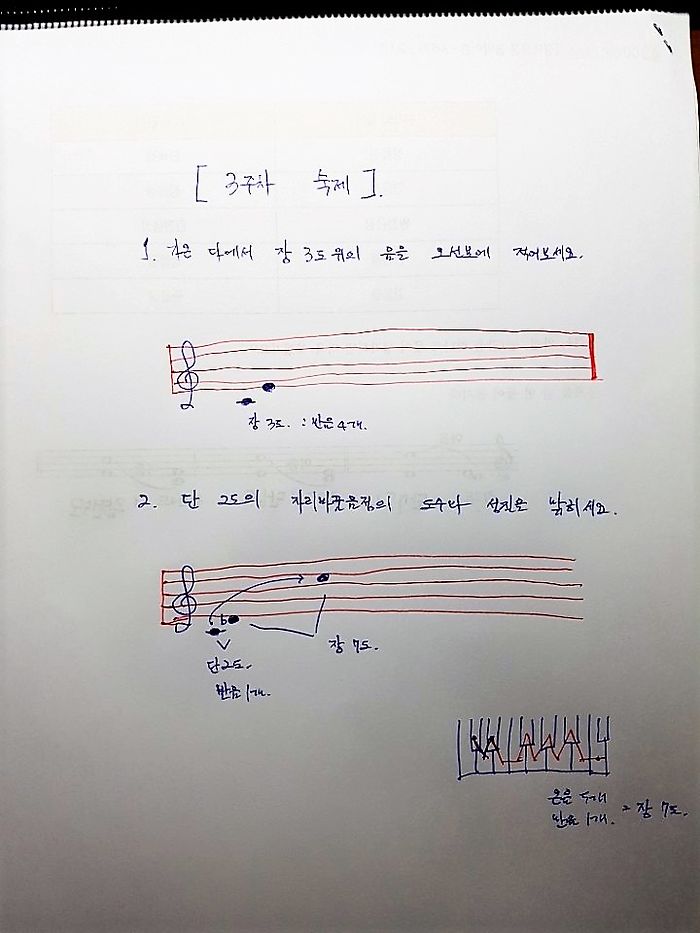 [ 3주차 숙제 ].
1. 가온 다에서 장 3도 위의 음을 오선보에 적어보세요.
장 3도. : 반음 4개.
2. 단 2도의 자리바꿈음정의 도수나 성질은 밝히세요.
장 7도.
단 2도.
반음 1개.
온음 5개
반음 1개. = 장 7도.